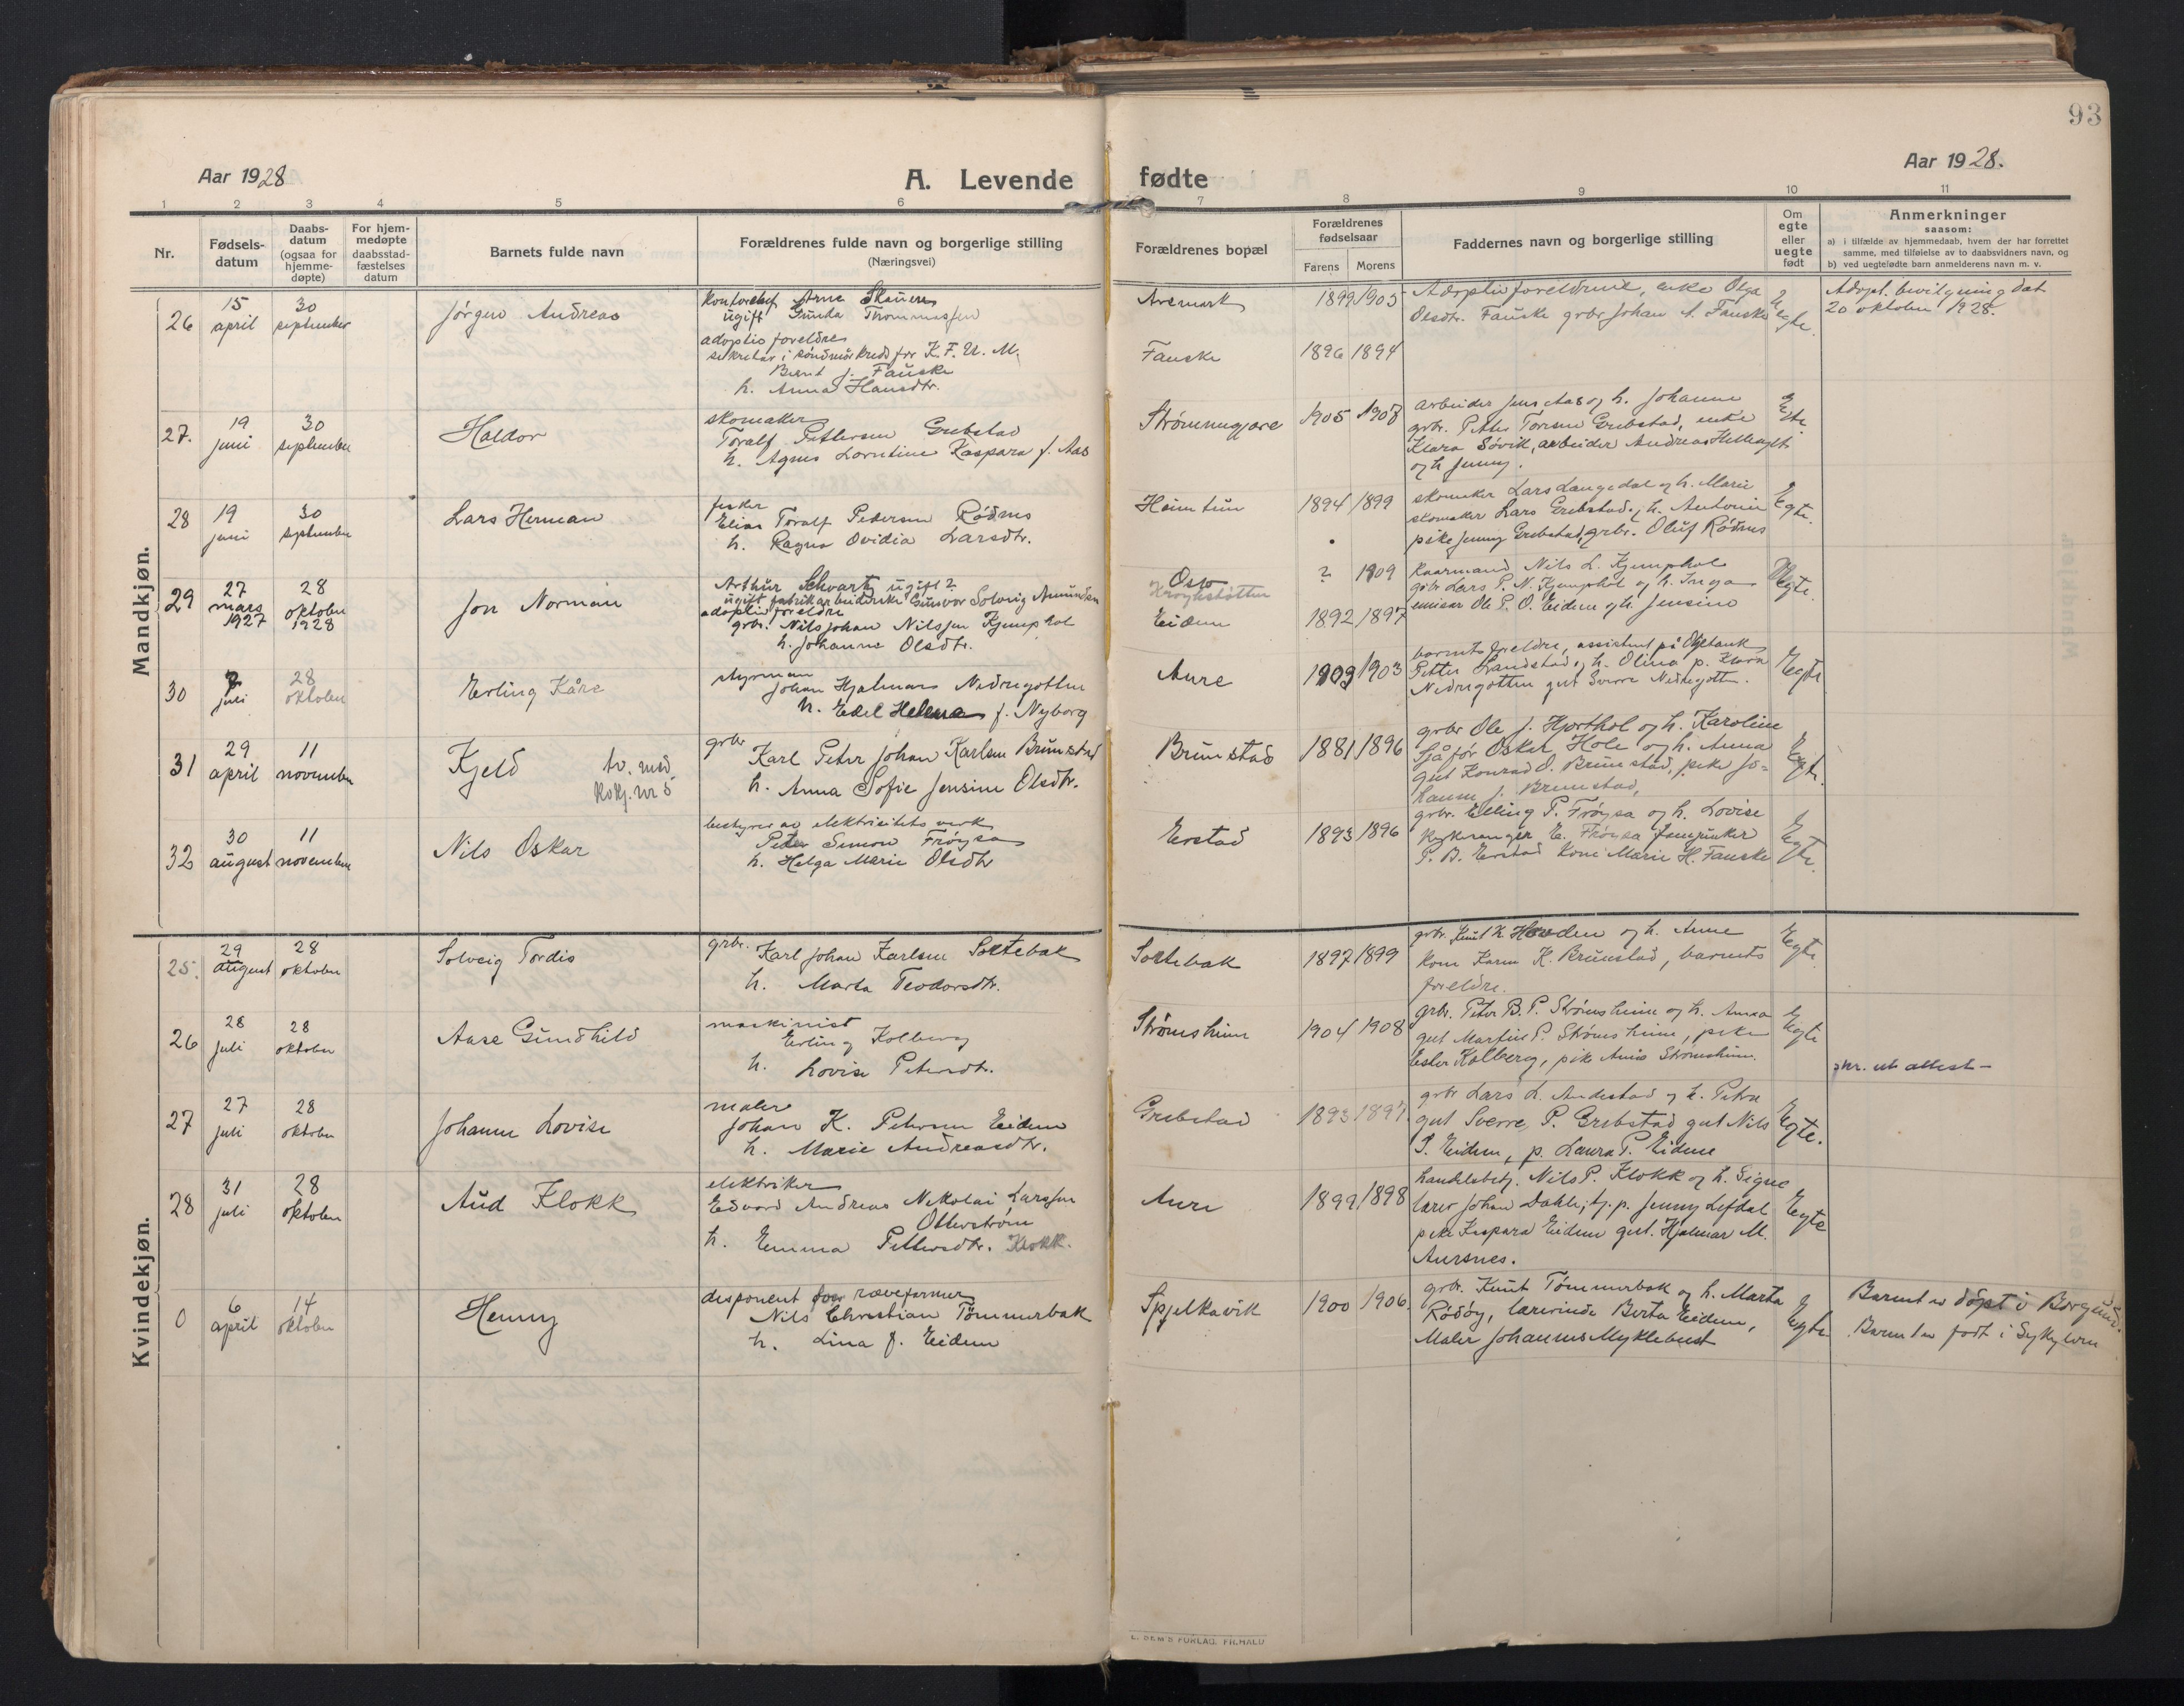 93
Aar 1928
A. Levende
fødte
Aar 1928.
1 2 3 4 5 6
7 8 9 10 11
Nr.
Fødsels-
datum
Daabs-
datum
(ogsaa for
hjemme-
døpte)
For hjem-
medøpte
daabsstad-
fæstelses
datum
Barnets fulde navn
Forældrenes fulde navn og borgerlige stilling
(Næringsvei)
Forældrenes bopæl
Forældrenes
fødselsaar
Farens Morens
Faddernes navn og borgerlige stilling
Om
egte
eller
uegte
født
Anmerkninger
saasom:
a) i tilfælde av hjemmedaab, hvem der har forrettet
samme, med tilføielse av to daabsvidners navn, og
b) ved uegtefødte barn anmelderens navn m. v.
Mandkjøn.
26
15
april
30
september
Jørgen Andreas
Kontorchef Arne
ugift Gunda Thommassen
adoptivforeldre
sekretær i søndmør kreds for K. F. U. M.
Bernt J. Fauske
h. Anna Hansdtr.
Aremark
1899 1905
Fauske
1896 1894
Adoptivforeldrene, enke Olga
Olsdtr. Fauske grbr Johan A. Fauske
Adopt. bevilgning dat
20 oktober 1928.
27.
19
juni
30
september
Haldor
skomaker
Toralf Pettersen Grebstad
h. Agnes Lorntine Kaspara f. Aas
Strømmegjære
1905 1908
Egte.
arbeider Jens Aas og h. Johanne
grbr. Petter Toresen Grebstad, enke
Klara Søvik, arbeider Andreas
og h Jenny.
28
19
juni
30
september
Lars Herman
fisker
Elias Toralf Pedersen Rødmo
h. Ragna Ovidia Larsdtr.
Heimtun
1894 1899
skomaker Lars Langedal og h. Marie
skomaker Lars Grebstad og h. Antonie
pike Jenny Grebstad, grbr. Oluf Rødmo
Egte.
29
27
mars
1927
28
oktober
1928
Jon Norman
Arthur Schvartz ugift ?
ugift fabrikarbeiderske Gunvor Solveig Amundsen
adoptivforeldre
grbr. Nils Johan Nilssen Kjemphol
h. Johanne Olsdtr.
Oslo
? 1909
Eidem
1892 1897
Kaarmand Nils L. Kjemphol
gbr Lars P. N. Kjemphol og h. Inga
emisær Ole P. O. Eidem og h. Jensine
Uegte.
30
juli
28
oktober
Erling Kåre
styrman
Johan Hjalmar Nedregotten
h. Edel Helena f. Nyborg
Aure
1909 1903
barnets foreldre, assistent på Oljetank
Petter Landstad og h. Olina p. Klara
Nedregotten gut Sverre Nedregott.
Egte
31
29
april
11
november
Kjeld
tv. med
grbr
Karl Peter Johan Karlsen Brunstad
h. Anna Sofie Jensine Olsdtr.
Brunstad
1881 1896
grbr Ole J. Hjorthol og h. Karoline
Sjåfør Oskar Hole og h. Anna
gut Konrad O. Brunstad, pike Jo=
hanne J. Brunstad,
Egte.
32
30
august
11
november
Nils Oskar
bestyrer av elektricitets verk
Peter Simon Frøysa
h. Helga Marie Olsdtr
Erstad
1893 1896
grbr. Elling P. Frøysa og h. Lovise
Kirkesanger E. Frøysa
P. B. Erstad kone Marie H. Fauske
Egte.
Kvindekjøn.
25.
29
august
28
oktober
Solveig Tordis
grbr. Karl Johan Karlsen Soltebak
h. Marta Teodorsdtr.
Soltebak
1897 1899
grbr. Knut K. Hovden og h. Anne
kone Karen K. Brunstad, barnets
foreldre.
Egte
26
28
juli
28
oktober
Aase Gundhild
maskinist
Erling Kolberg
h. Lovise Petersdtr.
Strømsheim
1904 1908
grbr. Peter B. P. Strømsheim og h. Anna
gut Martin P. Strømsheim, pike
Ester Kolberg, pike Anna Strømsheim.
Egte
skr. ut attest –
27
27
juli
28
oktober
Johanne Lovise
maler
Johan K. Petersen Eidem
h. Marie Andreasdtr.
Grebstad
1893 1897.
grbr Lars L. Andestad og h. Petra
gut Sverre P. Grebstad gut Nils
J. Eidem, p. Laura P. Eidem
Egte.
28
31
juli
28
oktober
Aud Klokk
elektriker
Edvard Andreas Nikolai Larssen
Otterstrøm
h. Emma Pettersdtr. Klokk.
Aure
1899 1898
handelsbetj. Nils P. Klokk og h. Signe
lærer Johan Dahle, tj. p. Jenny Lefdal
pike Kaspara Eidem gut. Hjalmar M.
Aursnes.
Egte
0
6
april
14
oktober
Henny
disponent for ræveformer
Nils Christian Tømmerbak
h. Lina f. Eidem
Spjelkavik
1900 1906.
grbr. Knut Tømmerbak og h. Marta
Rødøy, lærerinde Berta Eidem,
Maler Johannes Myklebust
Egte
Barnet er døpt i Borgund.
Barnet er født i Sykylven